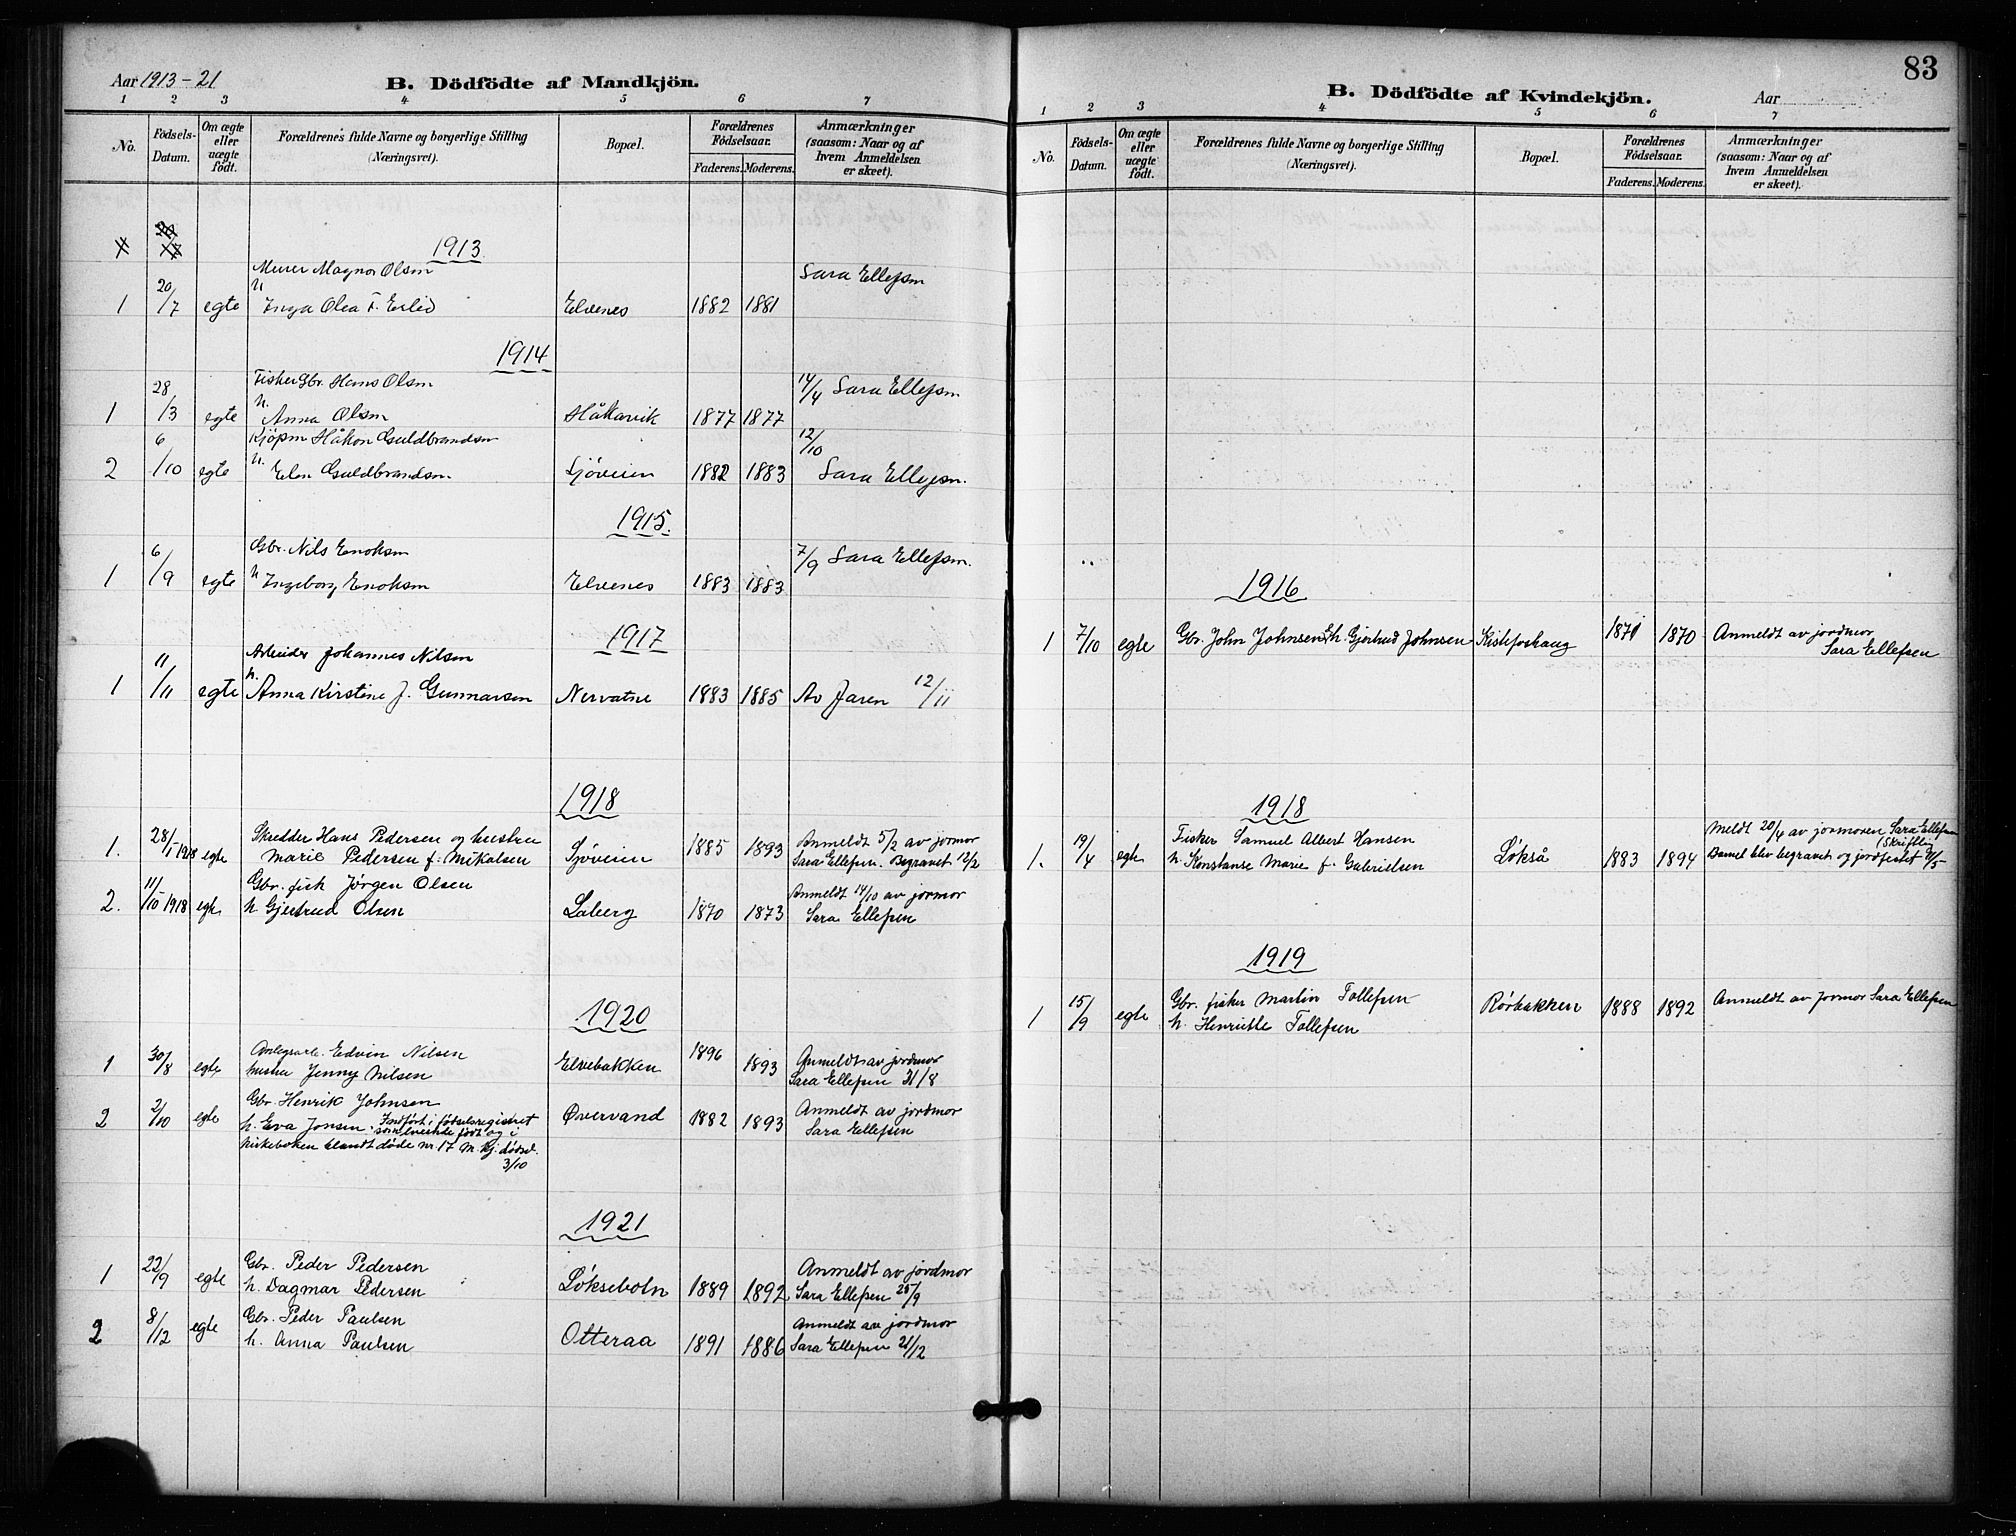 Aar 1913-21
B. Dödfödte af Mandkjön.
1 2 3 4 5 6 7
No.
Födsels-
Datum.
Om ægte
eller
uægte
födt.
Forældrenes fulde Navne og borgerlige Stilling
(Næringsvei).
Bopæl.
Forældrenes
Födselsaar.
Faderens. Moderens.
Anmærkninger
(saasom: Naar og af
hvem Anmeldelsen
er skeet).
1913
Murer Magnor Olsen Sara Ellefsen
1 20/7 egte h. Inga Olea f. Elvenes 1882 1881
1914
Fisker Gbr. Hans Olsen 14/4 Sara Ellefsen
1 28/3 egte h. Anna Olsen Håkavik 1877 1877
Kjøpm Håkon Guldbrandsen 12/10
2 6/10 egte h. Elen Guldbrandsen Sjöveien 1882 1883 Sara Ellefsen.
1915.
Gbr. Nils Enoksen 7/9 Sara Ellefsen.
1 6/9 egte h Ingeborg Enoksen Elvenes 1883 1883
1917
Arbeider Johannes Nilsen
1 11/11 egte h. Anna Kirstine J. Gunnarsen Nervatne 1883 1885 Av Faren 12/11
1918
Skredder Hans Pedersen og hustru Anmeldt 5/2 av jormor
1. 28/1 1918 egte Marie Pedersen f. Mikalsen Sjöveien 1885 1893 Sara Ellefsen. Begravet 12/2
Gbr. fisk Jörgen Olsen Anmeldt 14/10 av jormor
2. 11/10 1918 egte h Gjertrud Olsen Laberg 1870 1873 Sara Ellefsen
1920
Anlegsarb. Edvin Nilsen Anmeldt av jordmor
1 30/8 egte hustru Jenny Nilsen Elvebakken 1896 1893 Sara Ellefsen 31/8
Gbr. Henrik Johnsen Anmeldt av jordmor
2 2/10 egte h. Eva Jonsen. Indfört i födselsregistret Øvervand 1882 1893 Sara Ellefsen
som levende födt og i
kirkeboken blandt døde nr. 17 M. kj. dödsd.
3/10
1921
Gbr. Peder Pedersen Anmeldt av jordmor
1 22/9 egte h. Dagmar Pedersen Løksebotn 1889 1892 Sara Ellefsen 25/9
Gbr. Peder Paulsen Anmeldt av jordmor
2 8/12 egte h. Anna Paulsen Otteraa 1891 1886 Sara Ellefsen 21/12
83
B. Dödfödte af Kvindekjön.
Aar
1 2 3 4 5 6 7
No.
Födsels-
Datum.
Om ægte
eller
uægte
födt.
Forældrenes fulde Navne og borgerlige Stilling
(Næringsvei).
Bopæl.
Forældrenes
Födselsaar.
Faderens. Moderens.
Anmærkninger
(saasom: Naar og af
hvem Anmeldelsen
er skeet).
1916
1 7/10 egte Gbr. John Johnsen h. Gjertrud Johnsen Kistefoshaug 1871 1870 Anmeldt av jordmor
Sara Ellefsen
1918
Fisker Samuel Albert Hansen Meldt 20/4 av jormoren Sara Ellefsen
(Skriftlig)
1. 19/4 egte h. Konstanse Marie f. Gabrielsen Løkså 1883 1894 Barnet blev begravet og jordfestet
1919
Gbr. fisker Martin Tollefsen Anmeldt av jormor Sara Ellefsen
1 15/9 egte h. Henriette Tollefsen Rörbakken 1888 1892